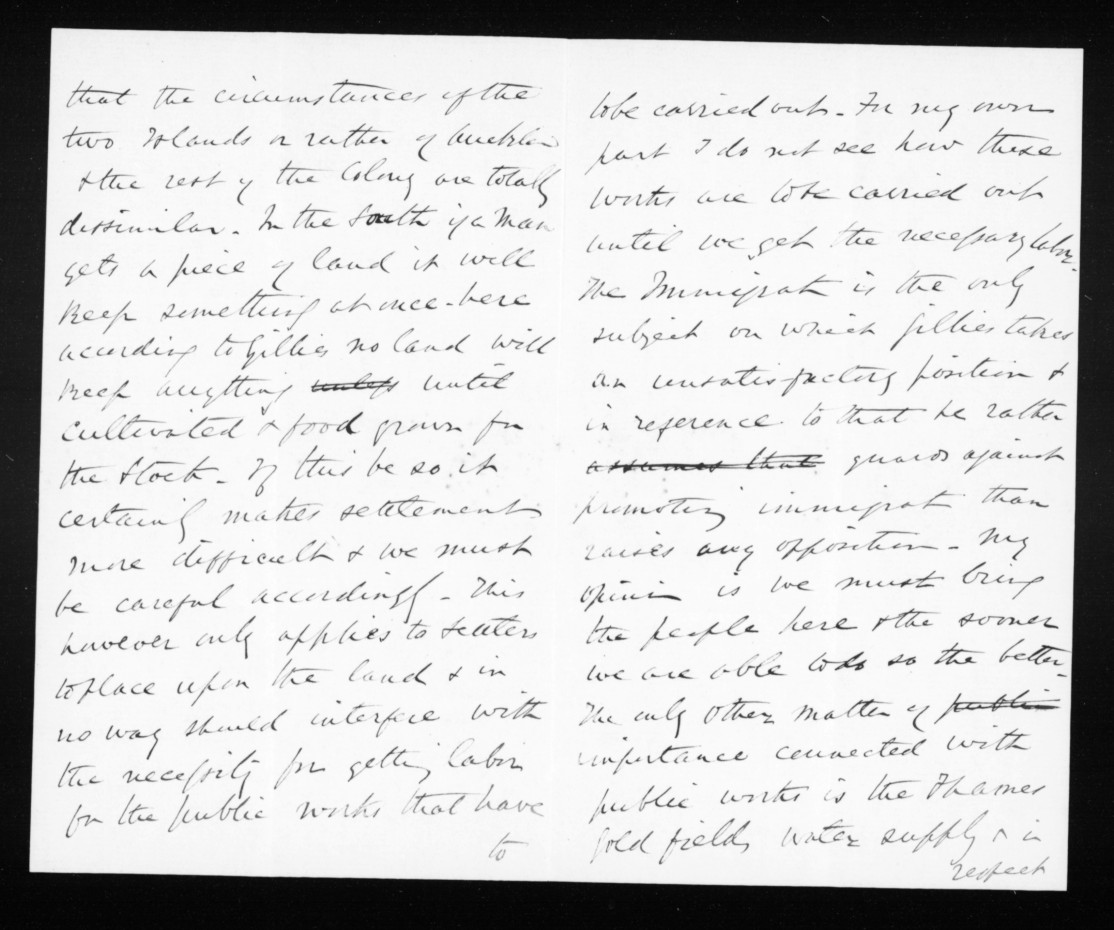 that the circumstances of the
two Islands or rather of Aucklan
& the rest of the Colony are totally
dissimilar. In the South if a Man
gets a piece of land it will
Keep something at once - here
according to Gillies no land will
Keep anything unless until
Cultivated & food grown for
the Stock - If this be so it
certainly makes settlement
more difficult & we must
be careful accordingly - This
however only applies to settlers
to place upon the land & in
no way should interfere with
the necessity for getting labor
for the public works that have
to
to be carried out. For my own
part I do not see how these
works are to be carried out
until we get the necessary labor.
The Immigrat is the only
subject on which Gillies takes
an unsatisfactory position &
in reference to that he rather
assumes that guards against
promoting immigrat than
raises any opposition - My
opinion is we must bring
the people here & the sooner
we are able to do so the better.
The only other matter of public
importance connected with
public works is the Thames
Gold fields water supply & in
respect